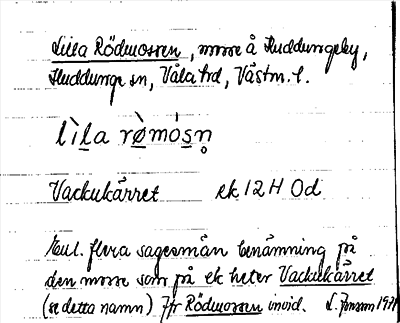 Lilla Rödmossen, mosse å Huddungeby,
Huddunge sn, Våla hd, Västm. l.
lìla rø̀mósn̥
Vackukärret ek 12 H Od
Enl. flera sagesmän benämning på
den mosse som på ek heter Vackukärret
(se detta namn) Jfr Rödmossen invid. L. Jonsson